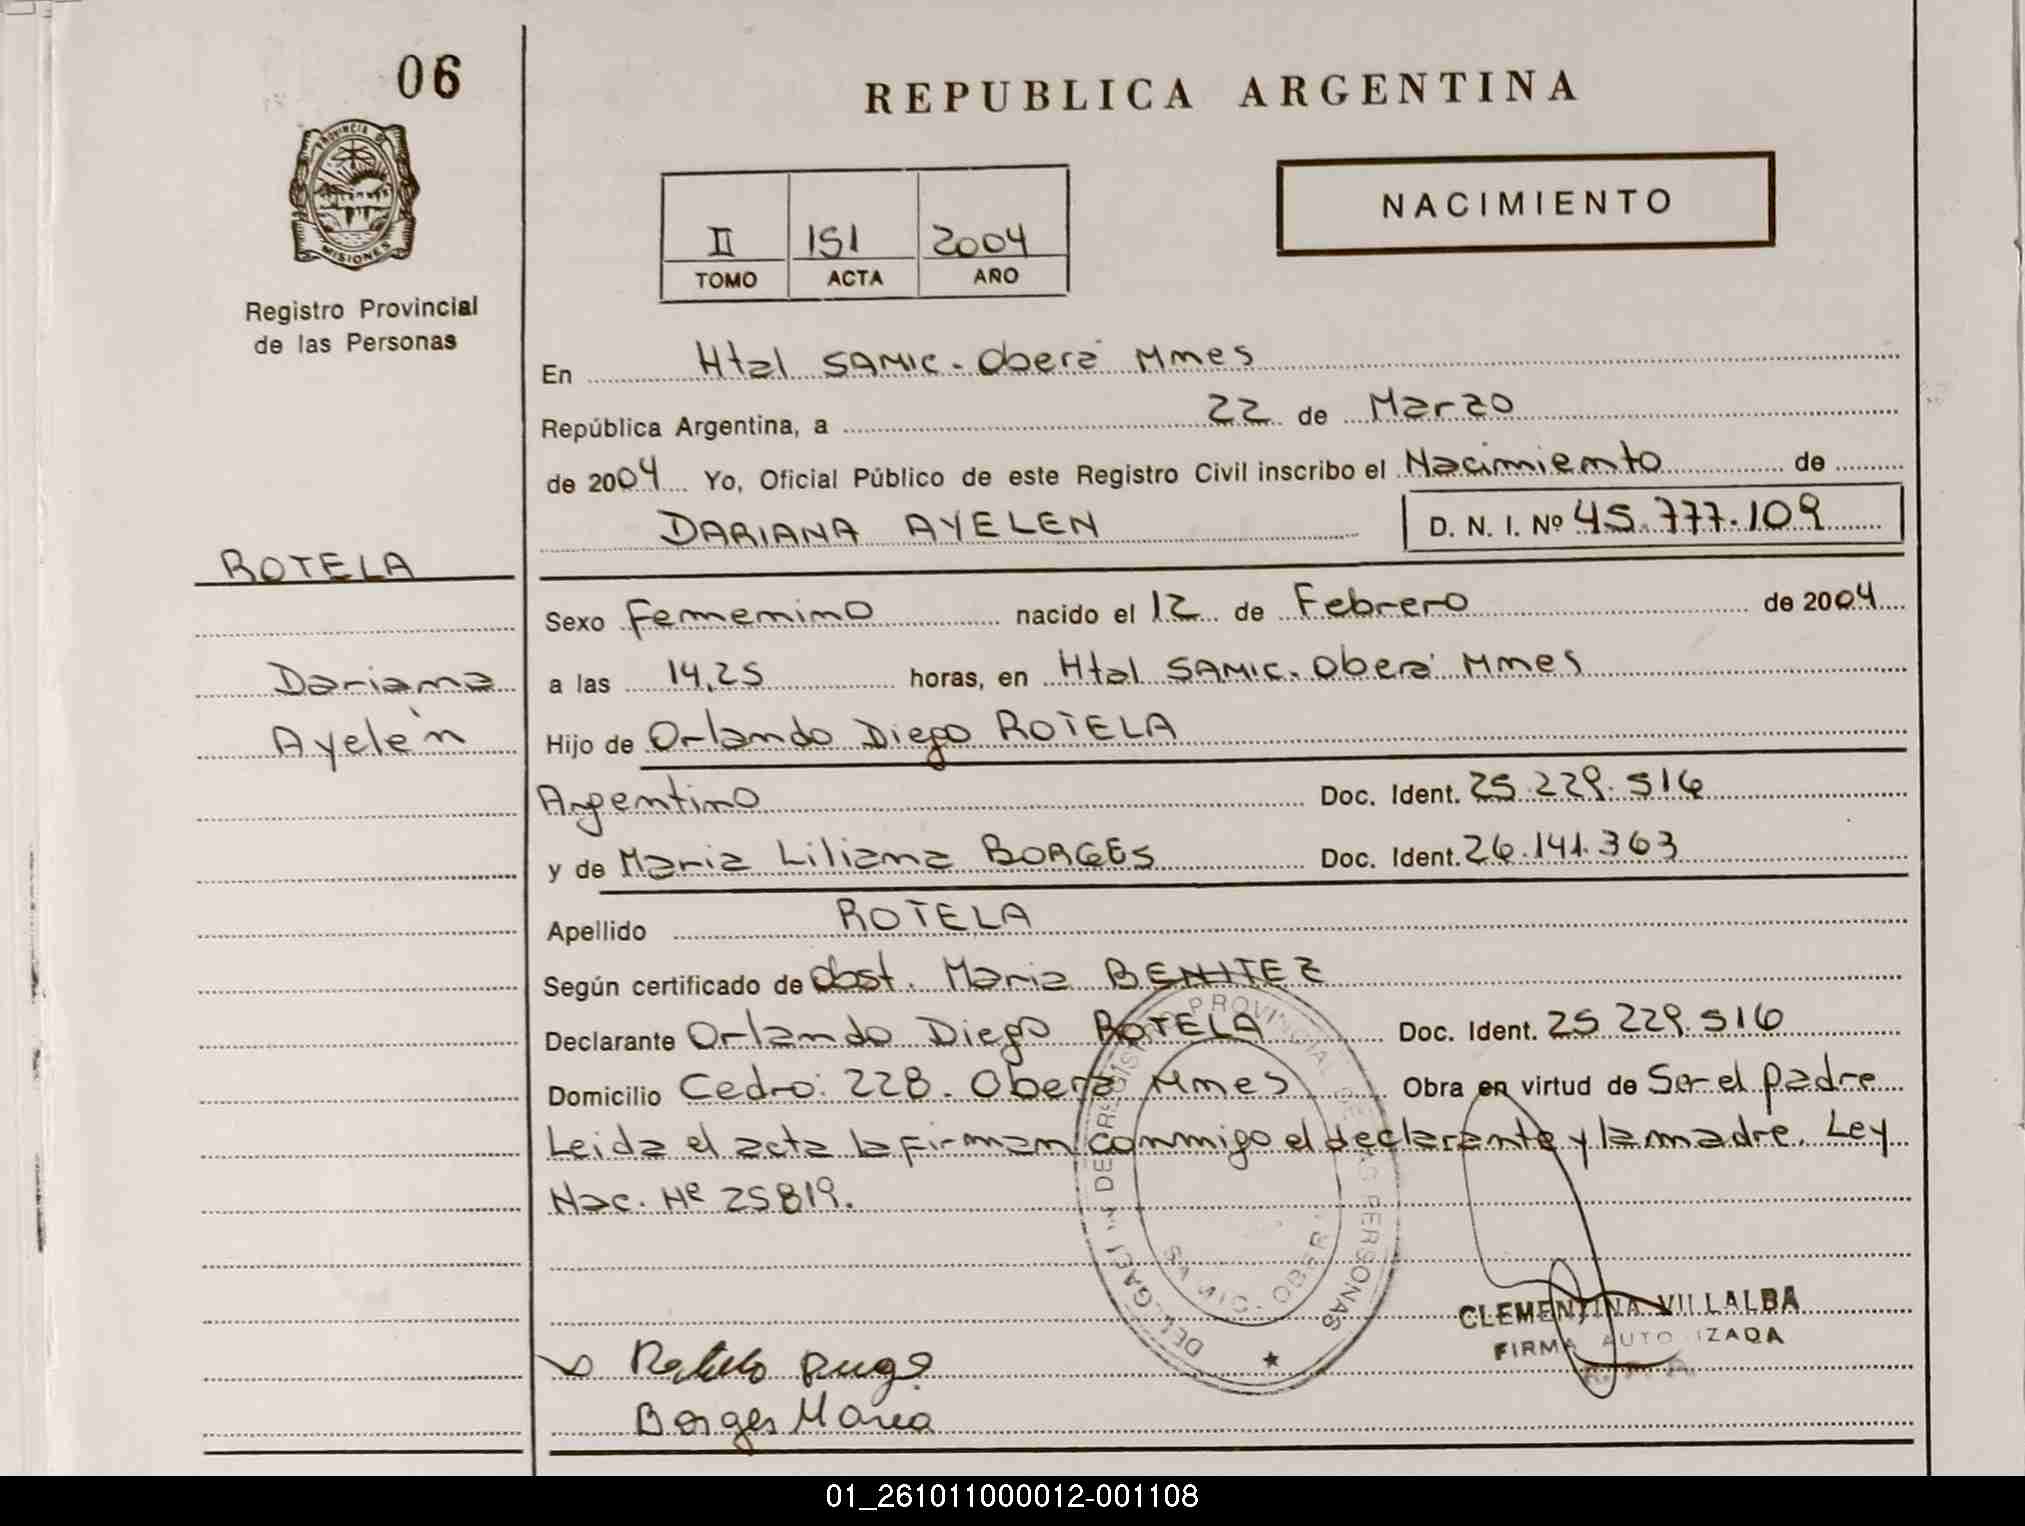 06
REPUBLICA ARGENTINA
PROVINCIA DE
MISIONES
Registro Provincial
de las Personas
NACIMIENTO
II 151 2004
TOMO ACTA AÑO
En Htal SAMIC. Oberá Mnes
República Argentina, a 22 de Marzo
de 2004 Yo, Oficial Público de este Registro Civil inscribo el Nacimiento de
DARIANA AYELEN D. N. I. Nº 45.777.109
ROTELA
Dariana
Ayelén
Sexo Femenino nacido el 12 de Febrero de 2004
a las 14,25 horas, en Htal SAMIC. Oberá Mnes
Hijo de Orlando Diego ROTELA
Argentino Doc. Ident. 25.229.516
y de Maria Liliana BORGES Doc. Ident. 26.141.363
Apellido ROTELA
Según certificado de Obst. Maria BENITEZ
Declarante Orlando Diego ROTELA Doc. Ident. 25.229.516
Domicilio Cedro: 228. Oberá Mnes Obra en virtud de Ser el padre
Leida el acta la firman conmigo el declarante y la madre. Ley
Nac. Nº 25819.
PROVINCIAL DE LAS PERSONAS
CLEMENTINA VILLALBA
FIRMA AUTORIZADA
Borges Maria
01_261011000012-001108